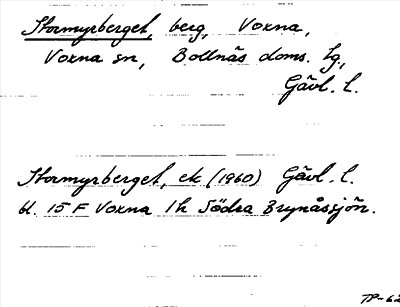 Stormyrberget, berg, Voxna,
Voxna sn, Bollnäs doms. tg,
Gävl. l.
Stormyrberget, ek. (1960) Gävl. l.
bl. 15 F Voxna 1 h Södra Brynåssjön.
TP-62